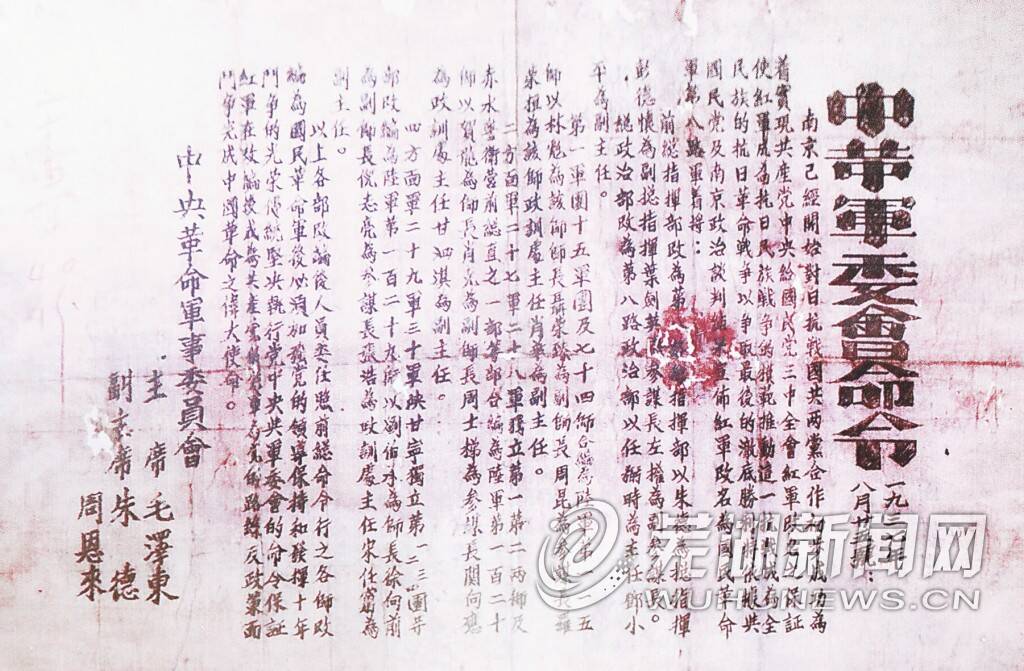 中革軍委會命令
一九三七年
八月廿五號：
南京已經開始對日抗戰國共兩黨合作初步成功為
着實現共產党中央給國民党三中全會紅軍改名之保証
使紅軍成為抗日民族戰争的模範推動這一抗戰成為全
民族的抗日革命戰争以争取最後的澈底勝利特依據共
國民党及南京政治談判結果宣佈紅軍改名為國民革命
軍第八路軍着將：
前總指揮部改為第八路總指揮部以朱德為總指揮
彭德懷為副總指揮葉劍英為參謀長左權為副參謀長。
總政治部改為第八路政治部以任弼時為主任鄧小
平為副主任。
第一軍團十五軍團及七十四師合編為陸軍第一一五
師以林彪為該師師長聶荣臻為副師長周昆為參謀長羅
荣桓為該師政訓處主任肖華為副主任。
二方面軍二十七軍二十八軍獨立第一第二兩師及
赤水警衛營前總直之一部等部合編為陸軍第一百二十
師以賀龍為師長肖克為副師長周士梯為參謀長関向應
為政訓處主任甘泗淇為副主任。
四方面軍二十九軍三十軍陜甘寧獨立第一二三四團等
部改編為陸軍第一百二十九師以劉伯承為師長徐向前
為副師長倪志亮為參謀長張浩為政訓處主任宋任窮為
副主任。
以上各部改編後人員委任照前總命令行之各師改
編為國民革命軍後必須加強党的領導保持和發揮十年
鬥争的光荣傳統堅决執行党中央與軍委會的命令保証
紅軍在改編後成為共產党的党軍為党的路線及政策而
鬥争完成中國革命之偉大使命。
中央革命軍事委員會
主席 毛澤東
副主席 朱德
周恩來
芜湖新闻网
WUHUNEWS.CN